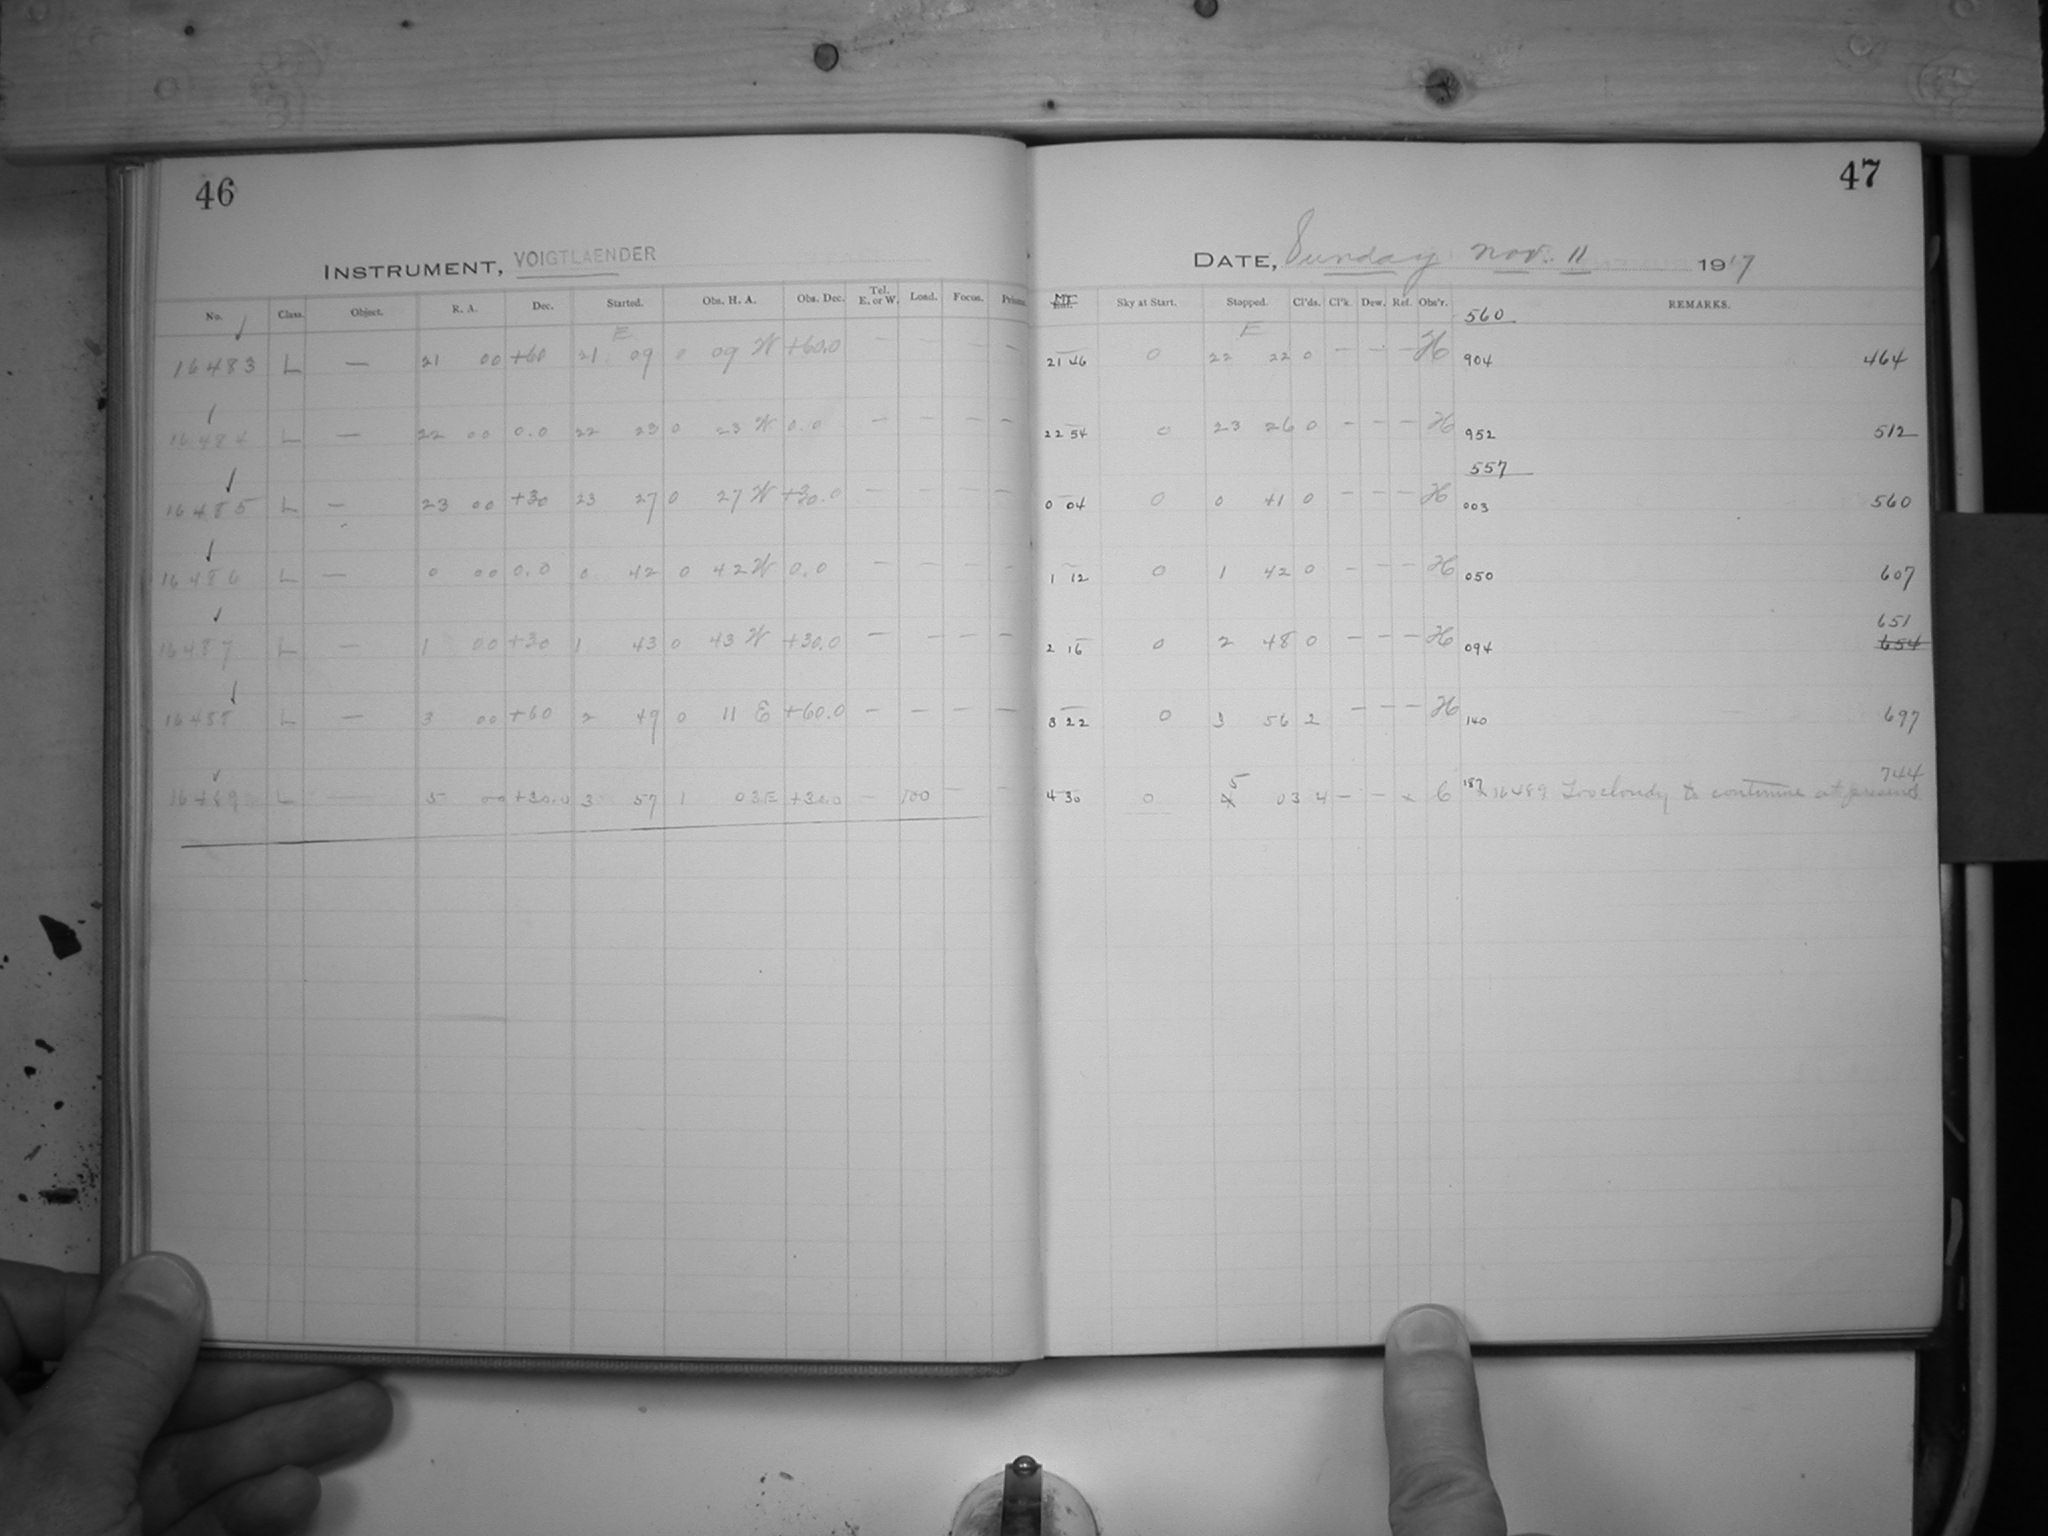 46
INSTRUMENT, VOIGTLAENDER
No. Class. Object. R. A. Dec. Started. Obs. H. A. Obs. Dec. Tel. E. or W. Load. Focus. Prisms.
E
16483 L — 21 00 +60 21 09 0 09 W +60.0 — — — —
16484 L — 22 00 0.0 22 23 0 23 W 0.0 — — — —
16485 L — 23 00 +30 23 27 0 27 W +30.0 — — — —
16486 L — 0 00 0.0 0 42 0 42 W 0.0 — — — —
16487 L — 1 00 +30 1 43 0 43 W +30.0 — — — —
16488 L — 3 00 +60 2 49 0 11 E +60.0 — — — —
16489 L — 5 00 +30.0 3 57 1 03 E +30.0 — 100 — —
47
DATE, Sunday Nov. 11 1917
MT Sky at Start. Stopped. Cl'ds. Cl'k. Dew. Ref. Obs'r. REMARKS.
560
E
21 46 0 22 22 0 — — — H 904 464
22 54 0 23 26 0 — — — H 952 512
557
0 04 0 0 41 0 — — — H 003 560
1 12 0 1 42 0 — — — H 050 607
651
2 16 0 2 48 0 — — — H 094 654
3 22 0 3 56 2 — — — H 140 697
744
4 30 0 5 03 4 — — x C 187 x 16489 Too cloudy to continue at present